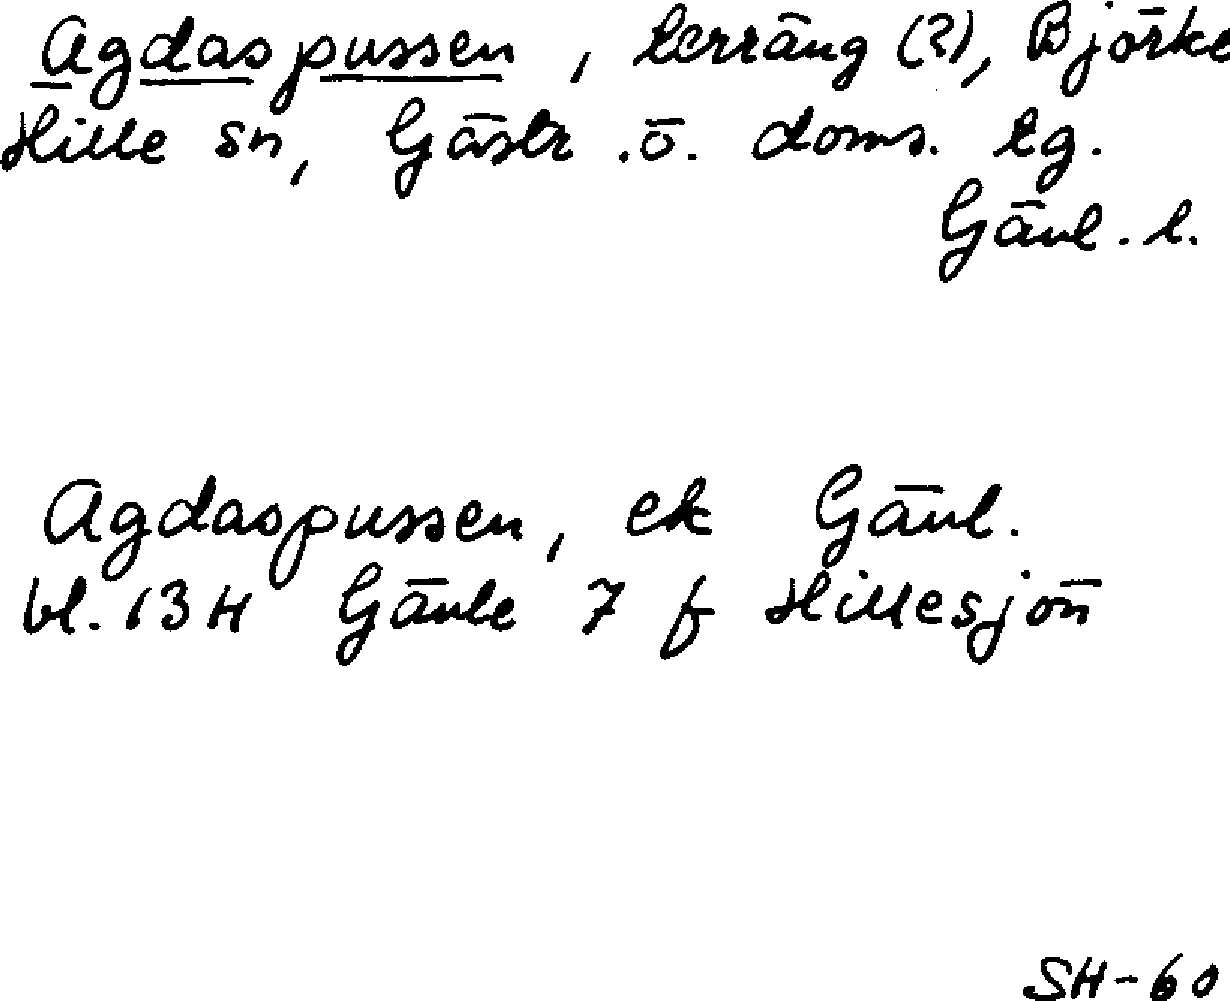 Agdaspussen, terräng (?), Björke
Hille sn, Gästr. ö. doms. tg.
Gävl. l.
Agdaspussen, ek Gävl.
bl. 13H Gävle 7 f Hillesjön
SH-60